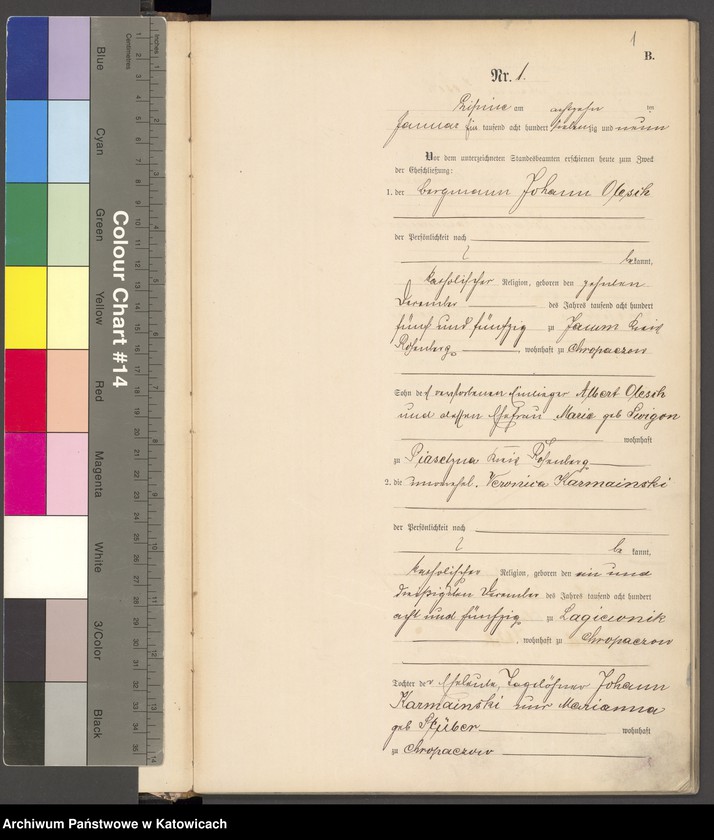 1
B.
Nr. 1.
Lipine am achtzehn ten
Januar tausend acht hundert siebenzig und neun
Vor dem unterzeichneten Standesbeamten erschienen heute zum Zweck
der Eheschließung:
1. der Bergmann Johann Olesch
der Persönlichkeit nach
bekannt,
katholischer Religion, geboren den zehnten
Dezember des Jahres tausend acht hundert
fünf und fünfzig zu Jaschin Kreis
Rosenberg, wohnhaft zu Chropaczow
Sohn des verstorbenen Einlieger Albert Olesch
und dessen Ehefrau Marie geb
wohnhaft
zu Piasetzna Kreis Rosenberg
2. die unverehel. Veronica Karmainski
der Persönlichkeit nach
be kannt,
katholischer Religion, geboren den ein und
dreißigsten Dezember des Jahres tausend acht hundert
acht und fünfzig zu Lagiewnik
, wohnhaft zu Chropaczow
Tochter der Eheleute, Tagelöhner Johann
Karmainski und Marianna
geb Stüber wohnhaft
zu Chropaczow
Colour Chart #14
Blue
Cyan
Green
Yellow
Red
Magenta
White
3/Color
Black
Centimetres
Inches
Archiwum Państwowe w Katowicach